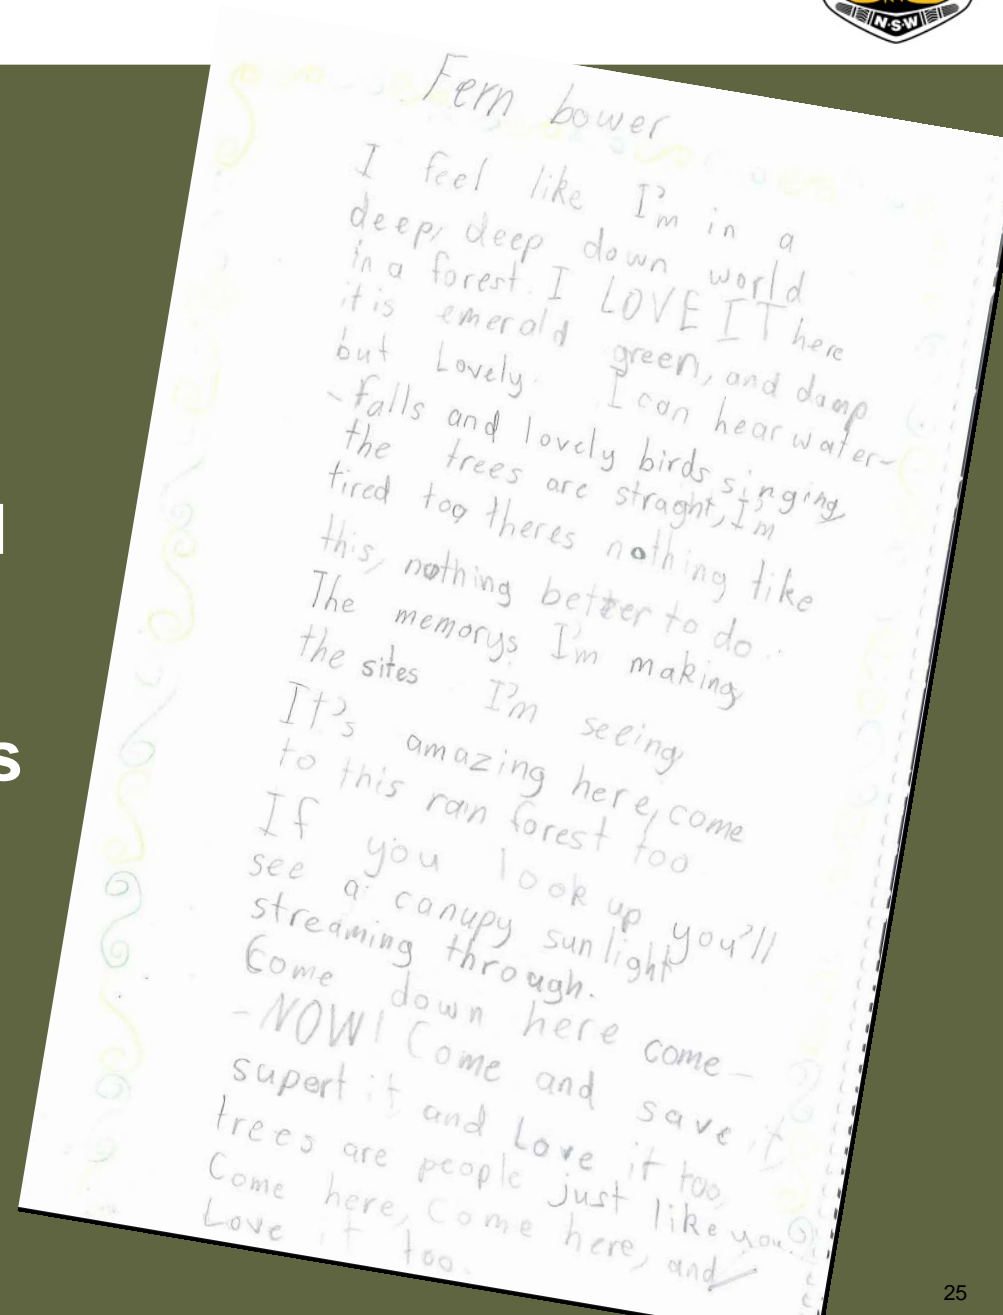 N·S·W
Fern bower
I feel like I'm in a
deep, deep down world
in a forest. I LOVE IT here
it is emerald green, and damp
but Lovely. I can hear water-
-falls and lovely birds singing
the trees are straght, I'm
tired too theres nothing like
this, nothing better to do.
The memorys I'm making
the sites I'm seeing
It's amazing here, come
to this rain forest too
If you look up you'll
see a canupy sunlight
streaming through.
Come down here come-
-NOW! Come and save it
supert it and Love it too,
trees are people just like you.
Come here, Come here, and
Love it too.
s
25